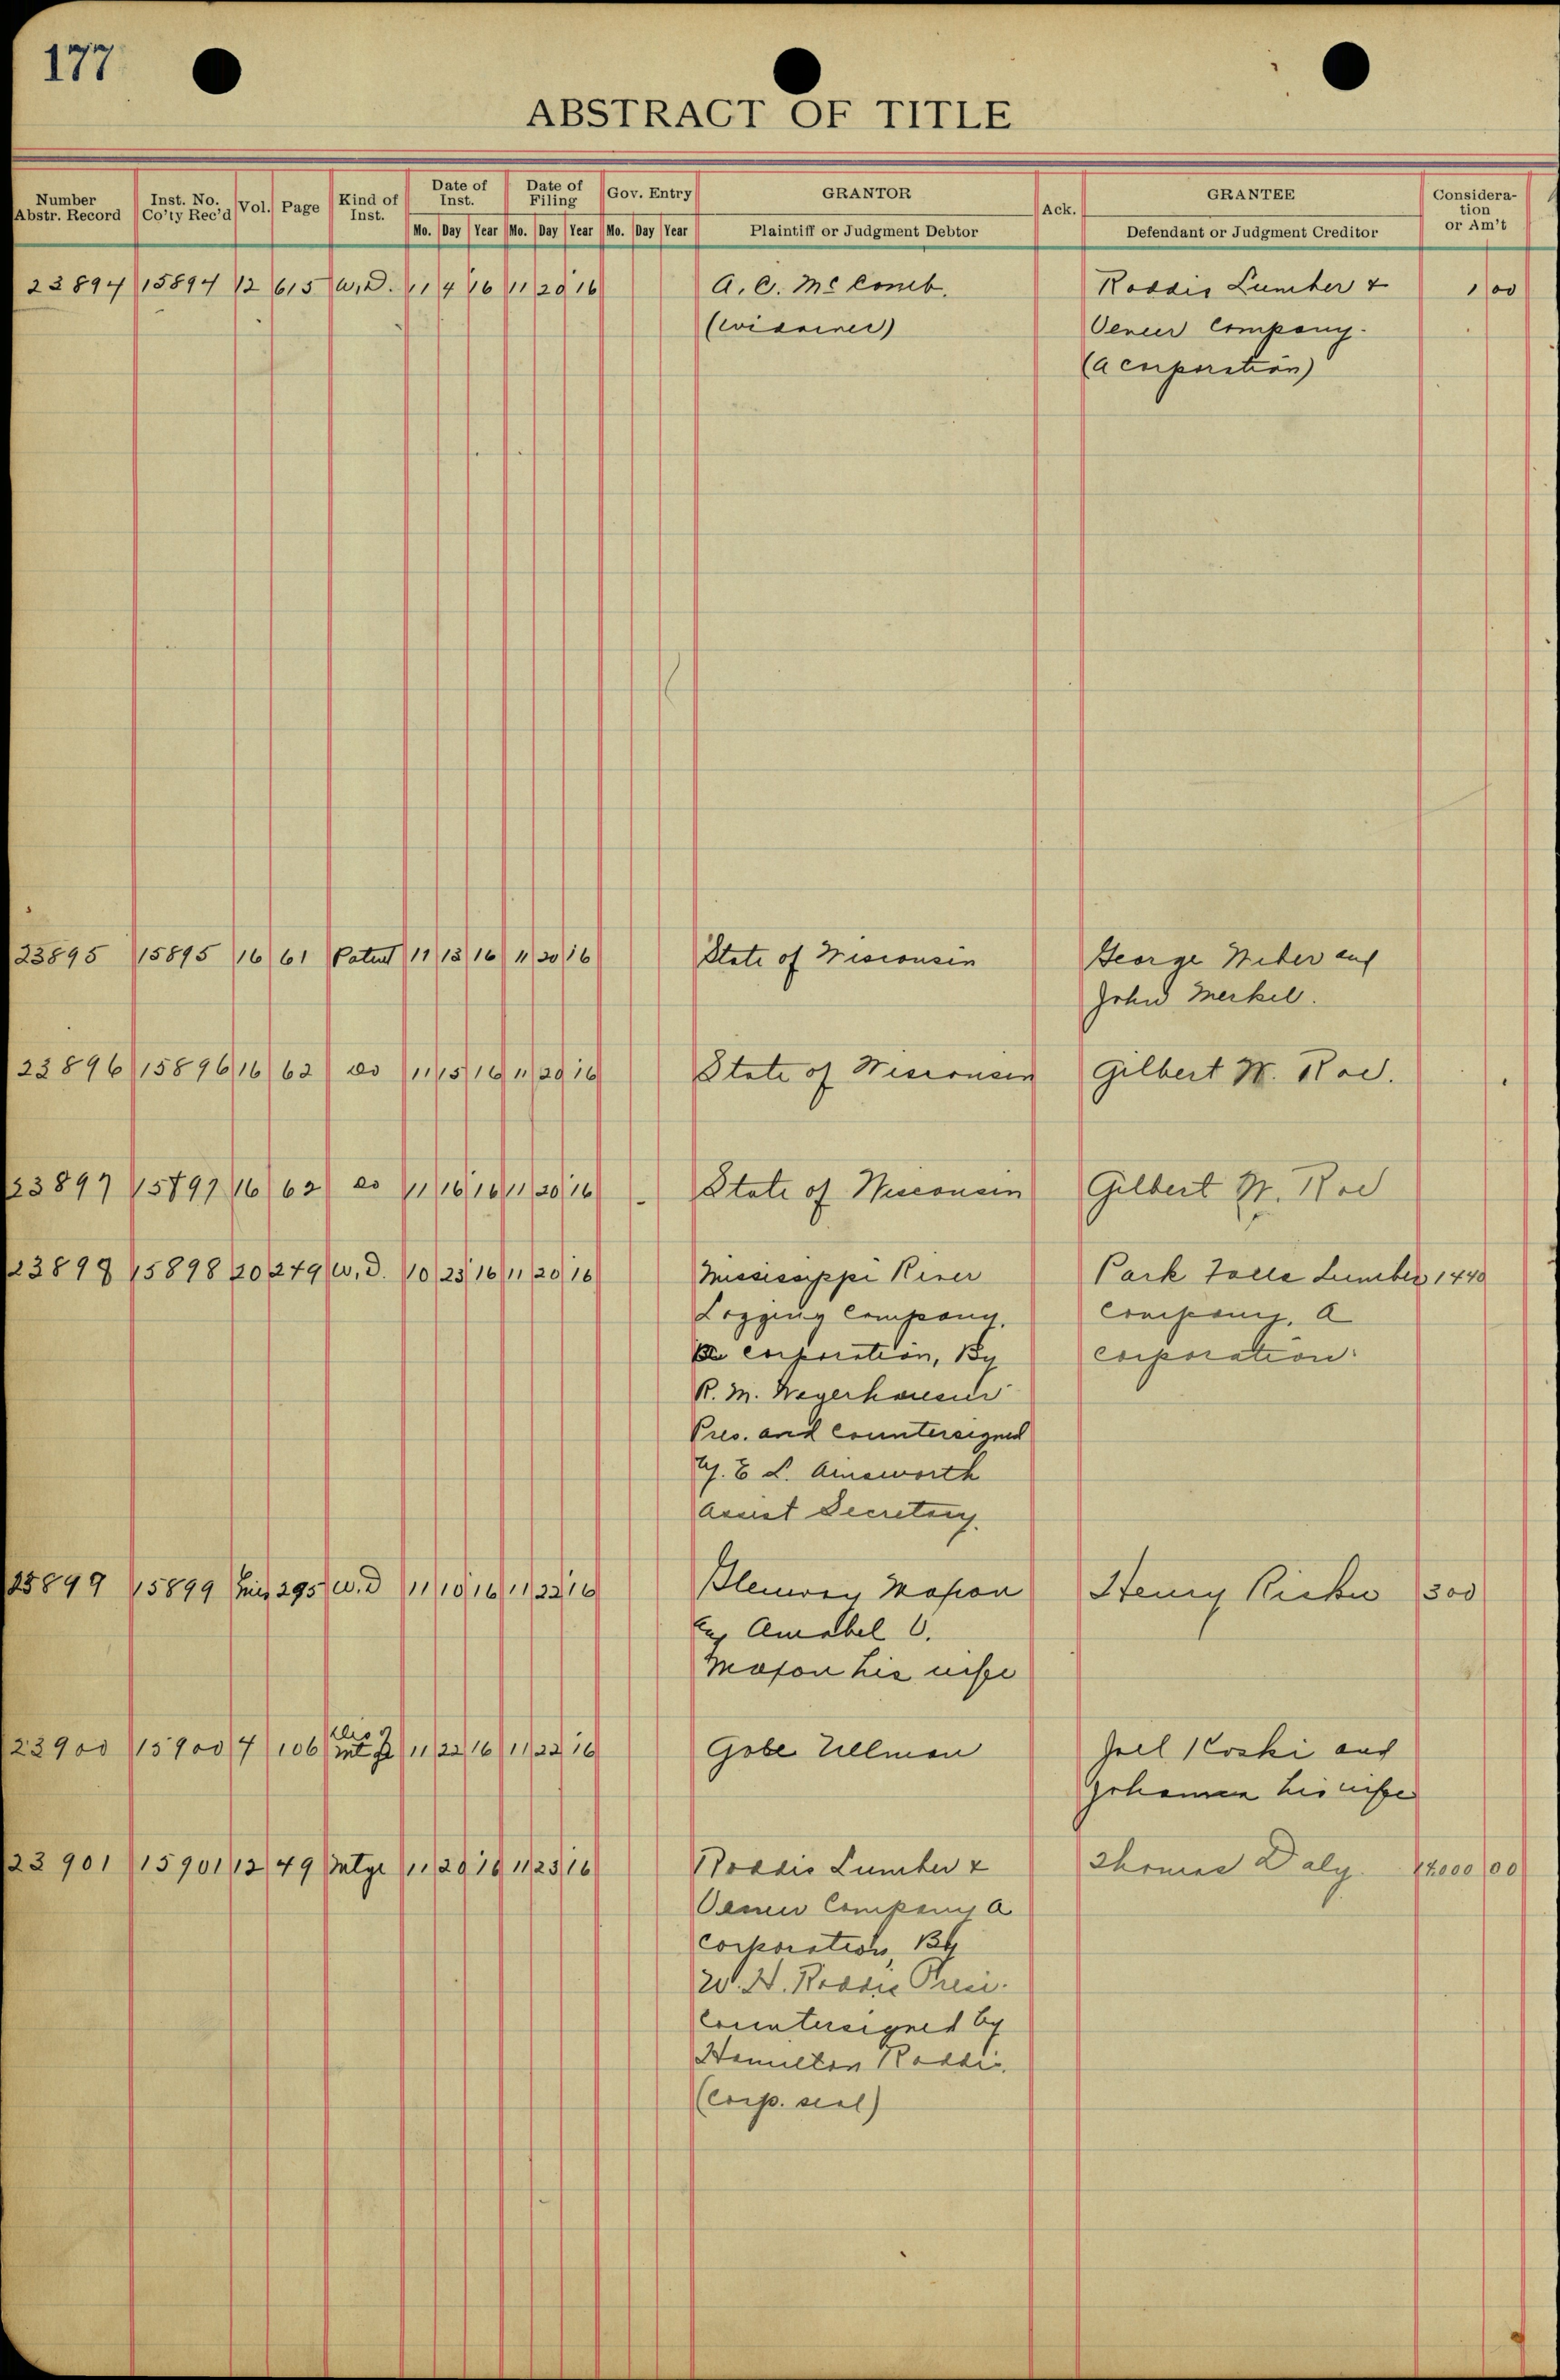 177
ABSTRACT OF TITLE
Number Abstr. Record | Inst. No. Co'ty Rec'd | Vol. | Page | Kind of Inst. | Date of Inst. | Date of Filing | Gov. Entry | GRANTOR | Ack. | GRANTEE | Consideration or Am't
Mo. Day Year | Mo. Day Year | Mo. Day Year | Plaintiff or Judgment Debtor | Defendant or Judgment Creditor
23894 15894 12 615 W.D. 11 4 16 11 20 16 A. C. McComb. Roddis Lumber & 1 00
(widower) Veneer Company.
(a corporation)
23895 15895 16 61 Patent 11 13 16 11 20 16 State of Wisconsin George Weber and
John Merkel.
23896 15896 16 62 do 11 15 16 11 20 16 State of Wisconsin Gilbert W. Roe.
23897 15897 16 62 do 11 16 16 11 20 16 State of Wisconsin Gilbert W. Roe
23898 15898 20 279 W.D. 10 25 16 11 20 16 Mississippi River Park Falls Lumber 1440
Logging Company, Company, a
corporation, By corporation.
R. M. Weyerhaeuser
Pres. and Countersigned
by E L. Ainsworth
Assist Secretary.
23899 15899 295 W.D 11 10 16 11 22 16 Mason Henry 300
and Amabel C.
Mason his wife
23900 15900 7 106 11 22 16 11 22 16 Gobe Ullman Joel Koski and
his wife
23901 15901 12 49 Mtge 11 20 16 11 23 16 Roddis Lumber & Thomas Daly. 14000 00
Veneer Company a
corporation, By
W. H. Roddis Presi.
Countersigned by
Hamilton Roddis.
(corp. seal)